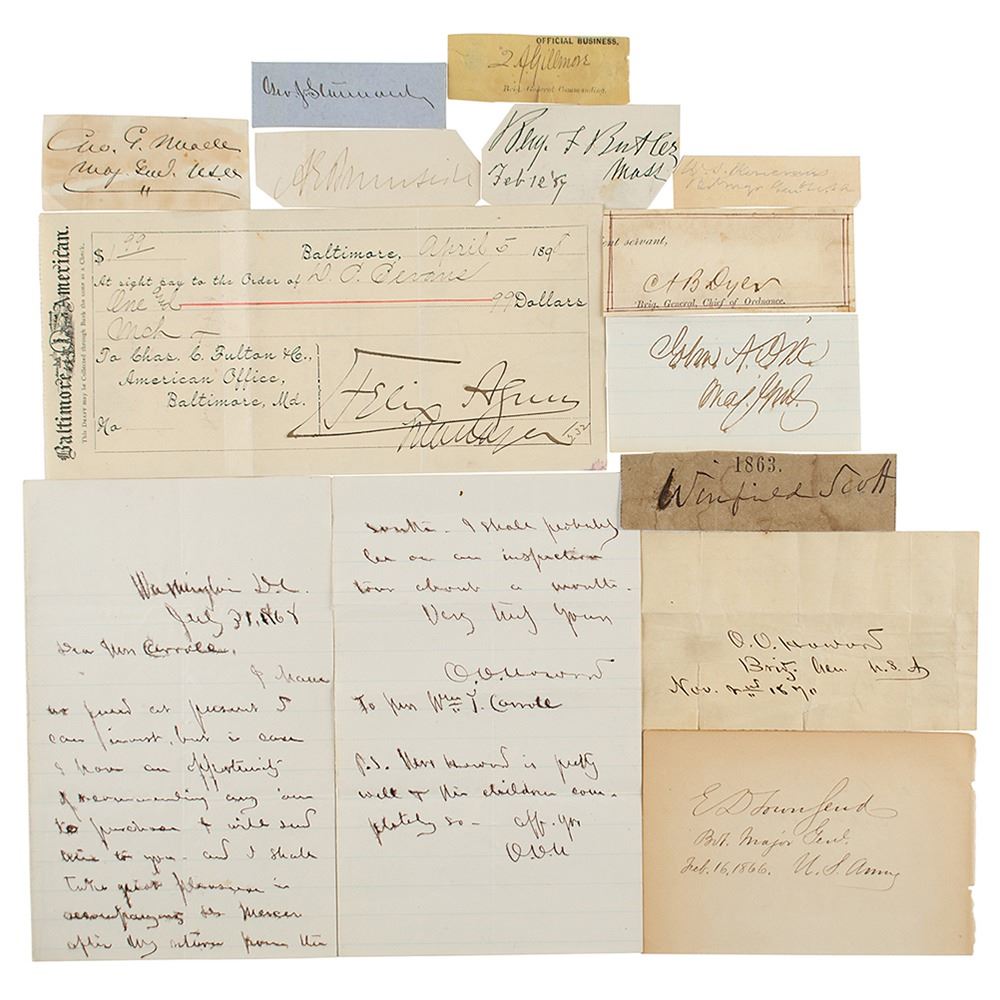 OFFICIAL BUSINESS,
Q A Gillmore
Brig. General Commanding.
Geo. J. Stannard
Geo. G. Meade
Maj. Genl. U.S.A.
A E Burnside
Benj. F Butler
Mass
Feb 12 '89
W. S. Rosecrans
Baltimore American.
This DRAFT may be Collected through Bank the same as a Check.
$ 1 99
Baltimore, April 5 1898
At sight pay to the Order of D. P. Bevans
One and 99 Dollars
To Chas. C. Fulton & Co.,
American Office,
Baltimore, Md.
No
Felix Agnus
Manager
232
ent servant,
A B Dyer
Brig. General, Chief of Ordnance.
John A. Dix
Maj. Genl.
1863.
Winfield Scott
Washington D.C.
July 31, 1868
Dear Mrs Carroll,
I have
no fund at present I
can invest, but in case
I have an opportunity
of recommending any one
to purchase I will send
him to you - and I shall
take great pleasure in
accompanying Mercer
after my return from the
south - I shall probably
be on an inspection
tour about a month.
Very truly yours
O.O. Howard
To Mrs Wm T. Carroll
P.S. Mrs Howard is pretty
well & the children com-
pletely so - aff. yrs
O.O.H
O. O. Howard
Brig. Gen. U.S.A
Nov. 2nd 1870
E D Townsend
Bvt. Major Genl.
Feb. 16, 1866. U. S. Army